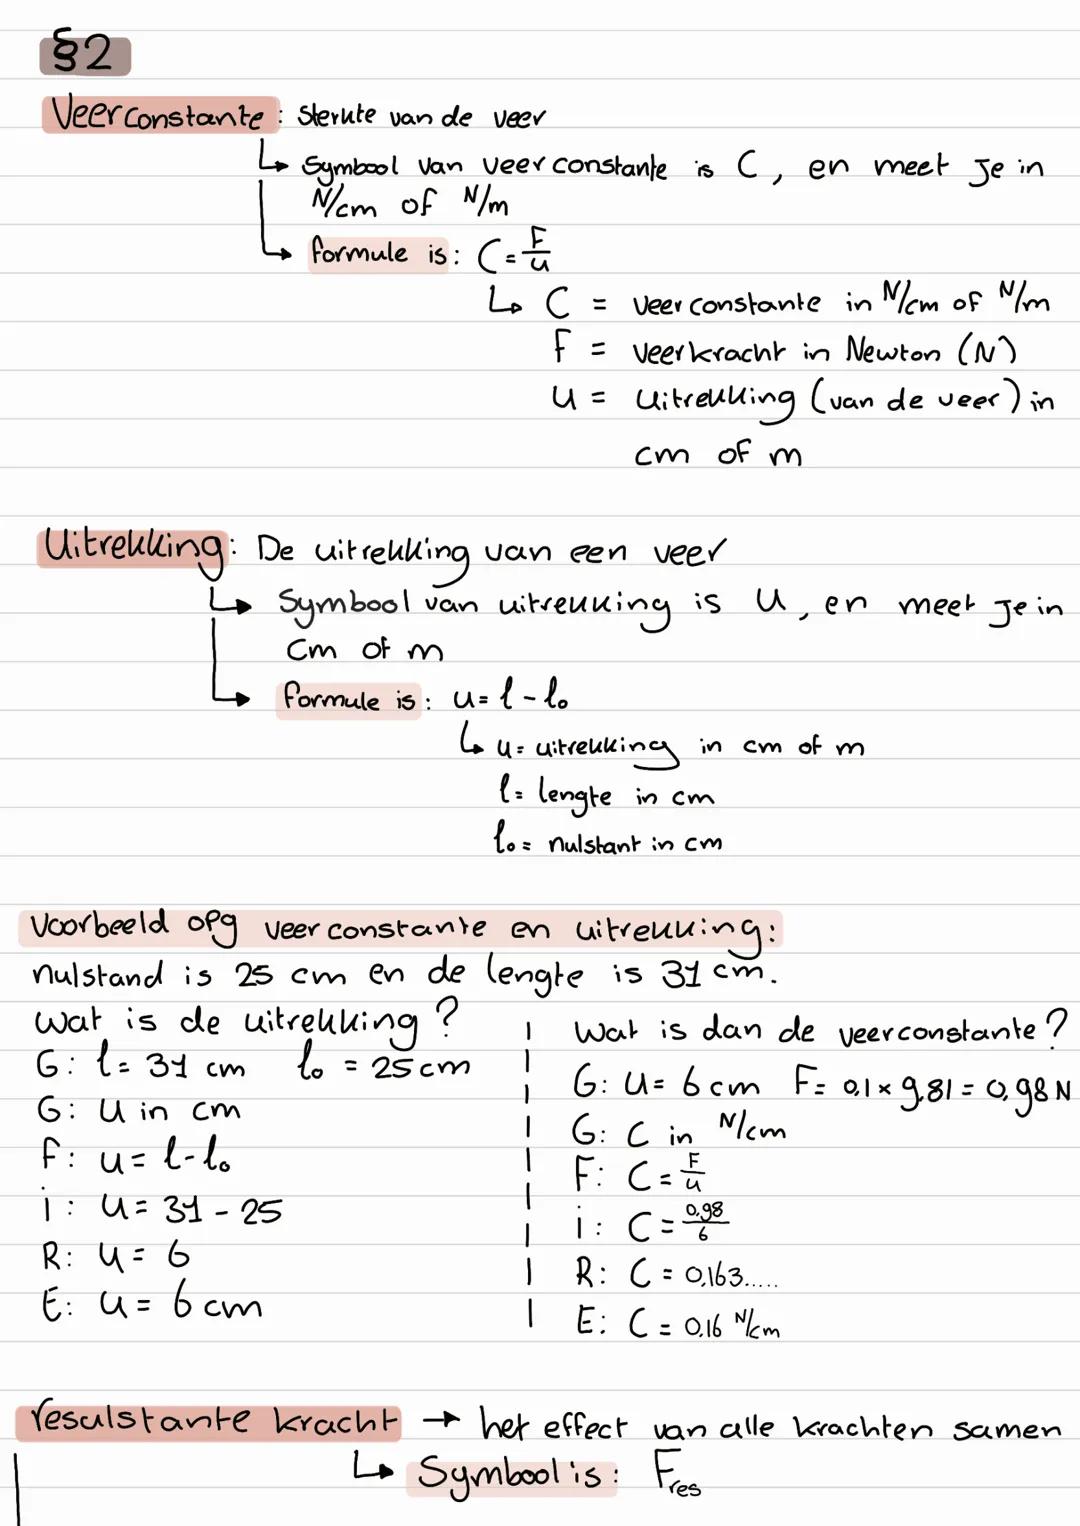 §2
Veerconstante: Sterkte van de veer
↳ Symbool van veerconstante is C, en meet je in
N/cm of N/m
↳ formule is: C = F/u
↳ C = veerconstante in N/cm of N/m
F = veerkracht in Newton (N)
u = uitrekking (van de veer) in
cm of m
Uitrekking: De uitrekking van een veer
↳ Symbool van uitrekking is u, en meet je in
cm of m
↳ formule is: u = l - l₀
↳ u = uitrekking in cm of m
l = lengte in cm
l₀ = nulstant in cm
Voorbeeld opg veerconstante en uitrekking:
nulstand is 25 cm en de lengte is 31 cm.
Wat is de uitrekking?
G: l = 31 cm l₀ = 25 cm
G: u in cm
F: u = l - l₀
i: u = 31 - 25
R: u = 6
E: u = 6 cm
Wat is dan de veerconstante?
G: u = 6 cm F = 0,1 × 9,81 = 0,98 N
G: C in N/cm
F: C = F/u
i: C = 0,98/6
R: C = 0,163.....
E: C = 0,16 N/cm
resulstante kracht → het effect van alle krachten samen
↳ Symbool is: Fres